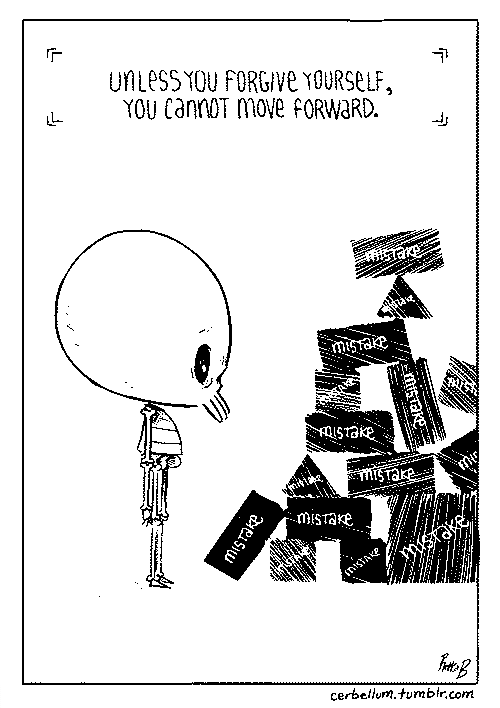 UNLESS YOU FORGIVE YOURSELF,
YOU CANNOT MOVE FORWARD.
MISTAKE
MISTAKE
MISTAKE
MISTAKE
MISTAKE
MIST
MISTAKE
MISTAKE
MIS
MISTAKE
MISTAKE
MISTAKE
MISTAKE
MISTAKE
cerbellum.tumblr.com